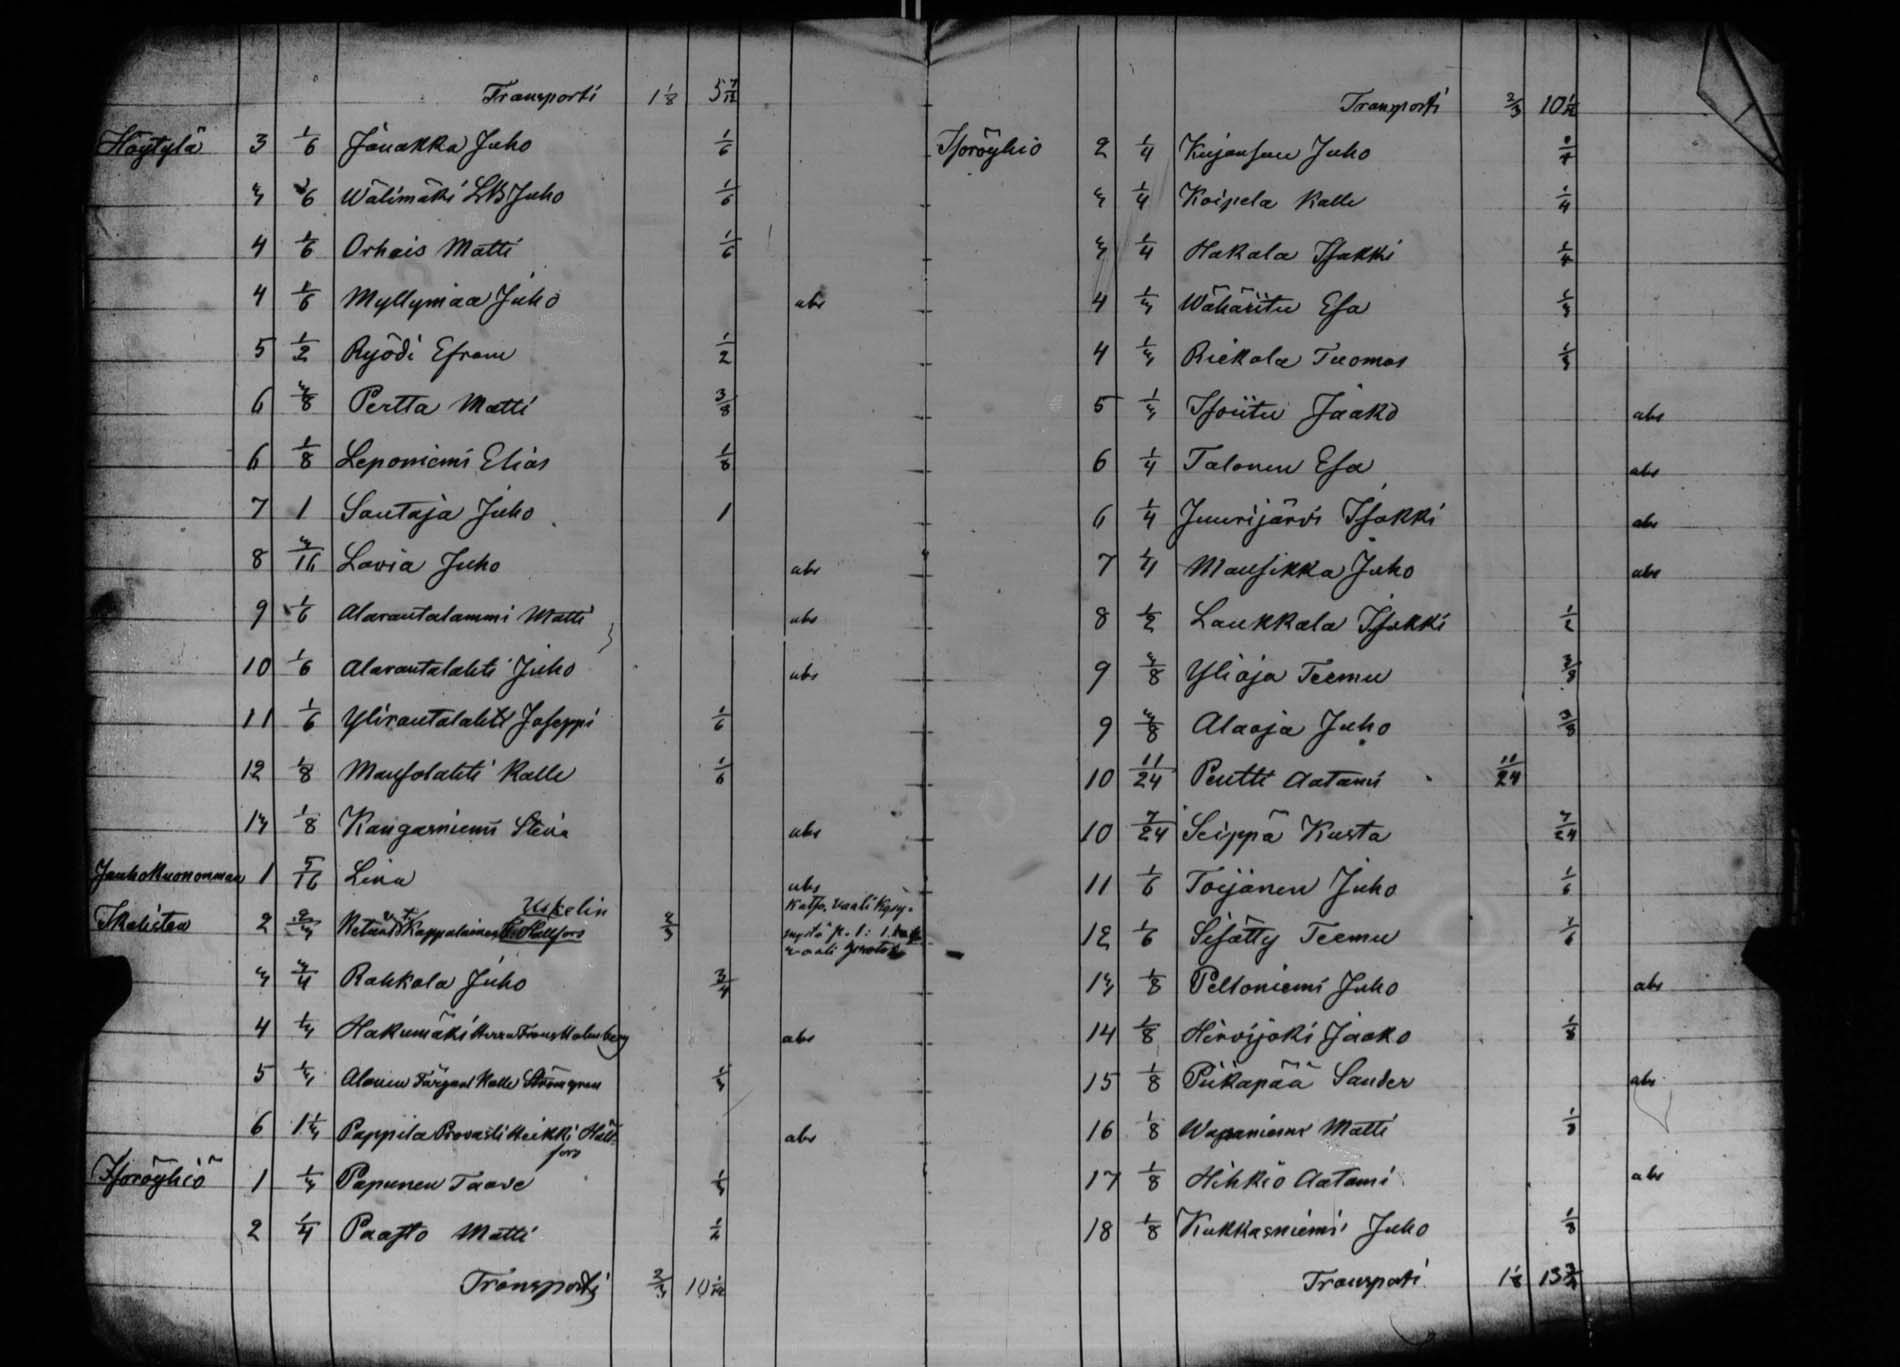 Transporti 1 1/8 5 7/12
Höytylä 3 1/6 Jänakka Juho 1/6
3 3/6 Wälimäki Juho 1/6
4 1/6 Orhais Matti 1/6
4 1/6 Myllymaa Juho abs
5 1/2 Ryödi Efram 1/2
6 3/8 Pertta Matti 3/8
6 1/8 Leponiemi Elias 1/8
7 1 Sautaja Juho 1
8 3/16 Lavia Juho abs
9 1/6 Alarautalammi Matti abs
10 1/6 Alarautalahti Juho abs
11 1/6 Ylirautalahti Joseppi 1/6
12 1/8 Mansolahti Kalle 1/6
13 1/8 Kangasniemi Steva abs
1 5/16 Lina abs
Ikalisten 2 2/3 Kappalainen Uskelin 2/3 Katso vaali
3 3/4 Rahkola Juho 3/4
4 1/3 Hakumäki Herra Frans Malmberg abs
5 1/3 Alanen Kalle Strömgren 1/3
6 1 1/3 Pappila Provasti Heikki Hällfors abs
Isoröyhiö 1 1/3 Papunen Taave 1/3
2 1/4 Paasto Matti 1/2
Transporti 2/3 10 1/12
Transporti 2/3 10 1/12
Isoröyhiö 2 1/4 Juho
3 1/4 Koipela Kalle 1/4
3 1/4 Hakala Isakki 1/4
4 1/3 Wähäriitu Esa 1/3
4 1/3 Riekola Tuomas 1/3
5 1/3 Isoriitu Jaako abs
6 1/4 Talonen Esa abs
6 1/4 Juurijärvi Isakki abs
7 1/4 Mansikka Juho abs
8 1/2 Laukkala Isakki 1/2
9 3/8 Yliaja Teemu 3/8
9 3/8 Alaoja Juho 3/8
10 11/24 Pentti Aatami 11/24
10 7/24 Seippä Kusta 7/24
11 1/6 Toijanen Juho 1/6
12 1/6 Sisätty Teemu 1/6
13 1/8 Peltoniemi Juho abs
14 1/8 Hirvijoki Jaako 1/8
15 1/8 Piikapää Sander abs
16 1/8 Wapaniemi Matti 1/8
17 1/8 Hihkiö Aatami abs
18 1/8 Kukkasniemi Juho 1/8
Transporti 1 1/8